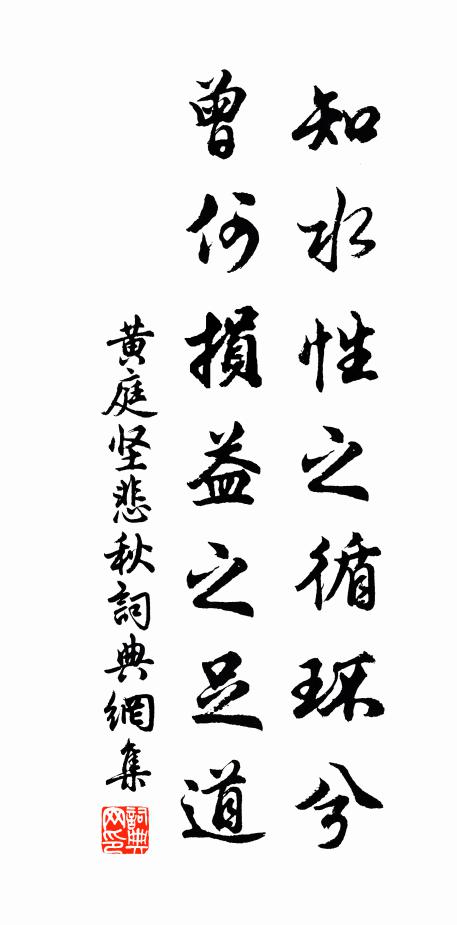 知水性之循环兮
曾何損益之足道
黄庭坚悲秋詞典網集
詞典網印